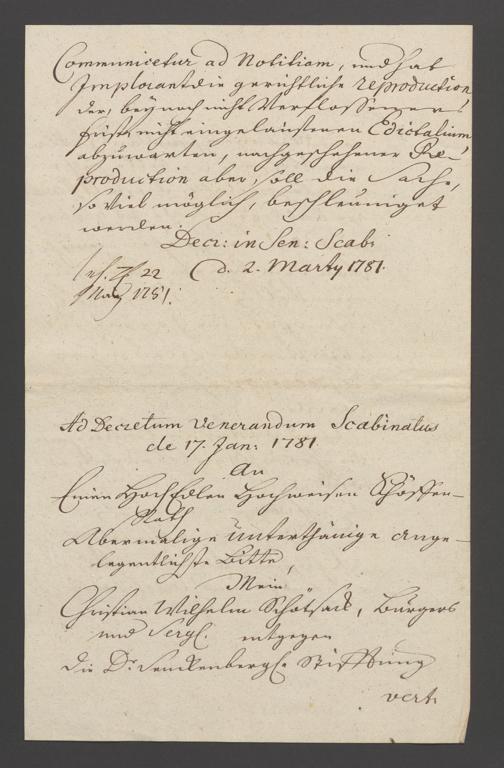 Communicetur ad Notitiam, und hat
Implorant die gerichtliche reproduction
der, bey noch nicht Verflossener
Frist, nicht eingelauffenen Edictalium
abzuwarten, nachgeschehener Re-
production aber, soll die Sache,
so viel möglich, beschleuniget
werden.
Decr: in Sen: Scab:
d. 2. Marty 1781.
22
1781.
Ad Decretum Venerandum Scabinatus
de 17. Jan: 1781.
An
Einen HochEdlen Hochweisen Schöffen-
Rath
Abermalige Unterthänige ange-
legentlichste Bitte,
Mein
Christian Wilhelm, Bürgers
und entgegen
die Dr. Senckenbergl. Stifftung
vert.